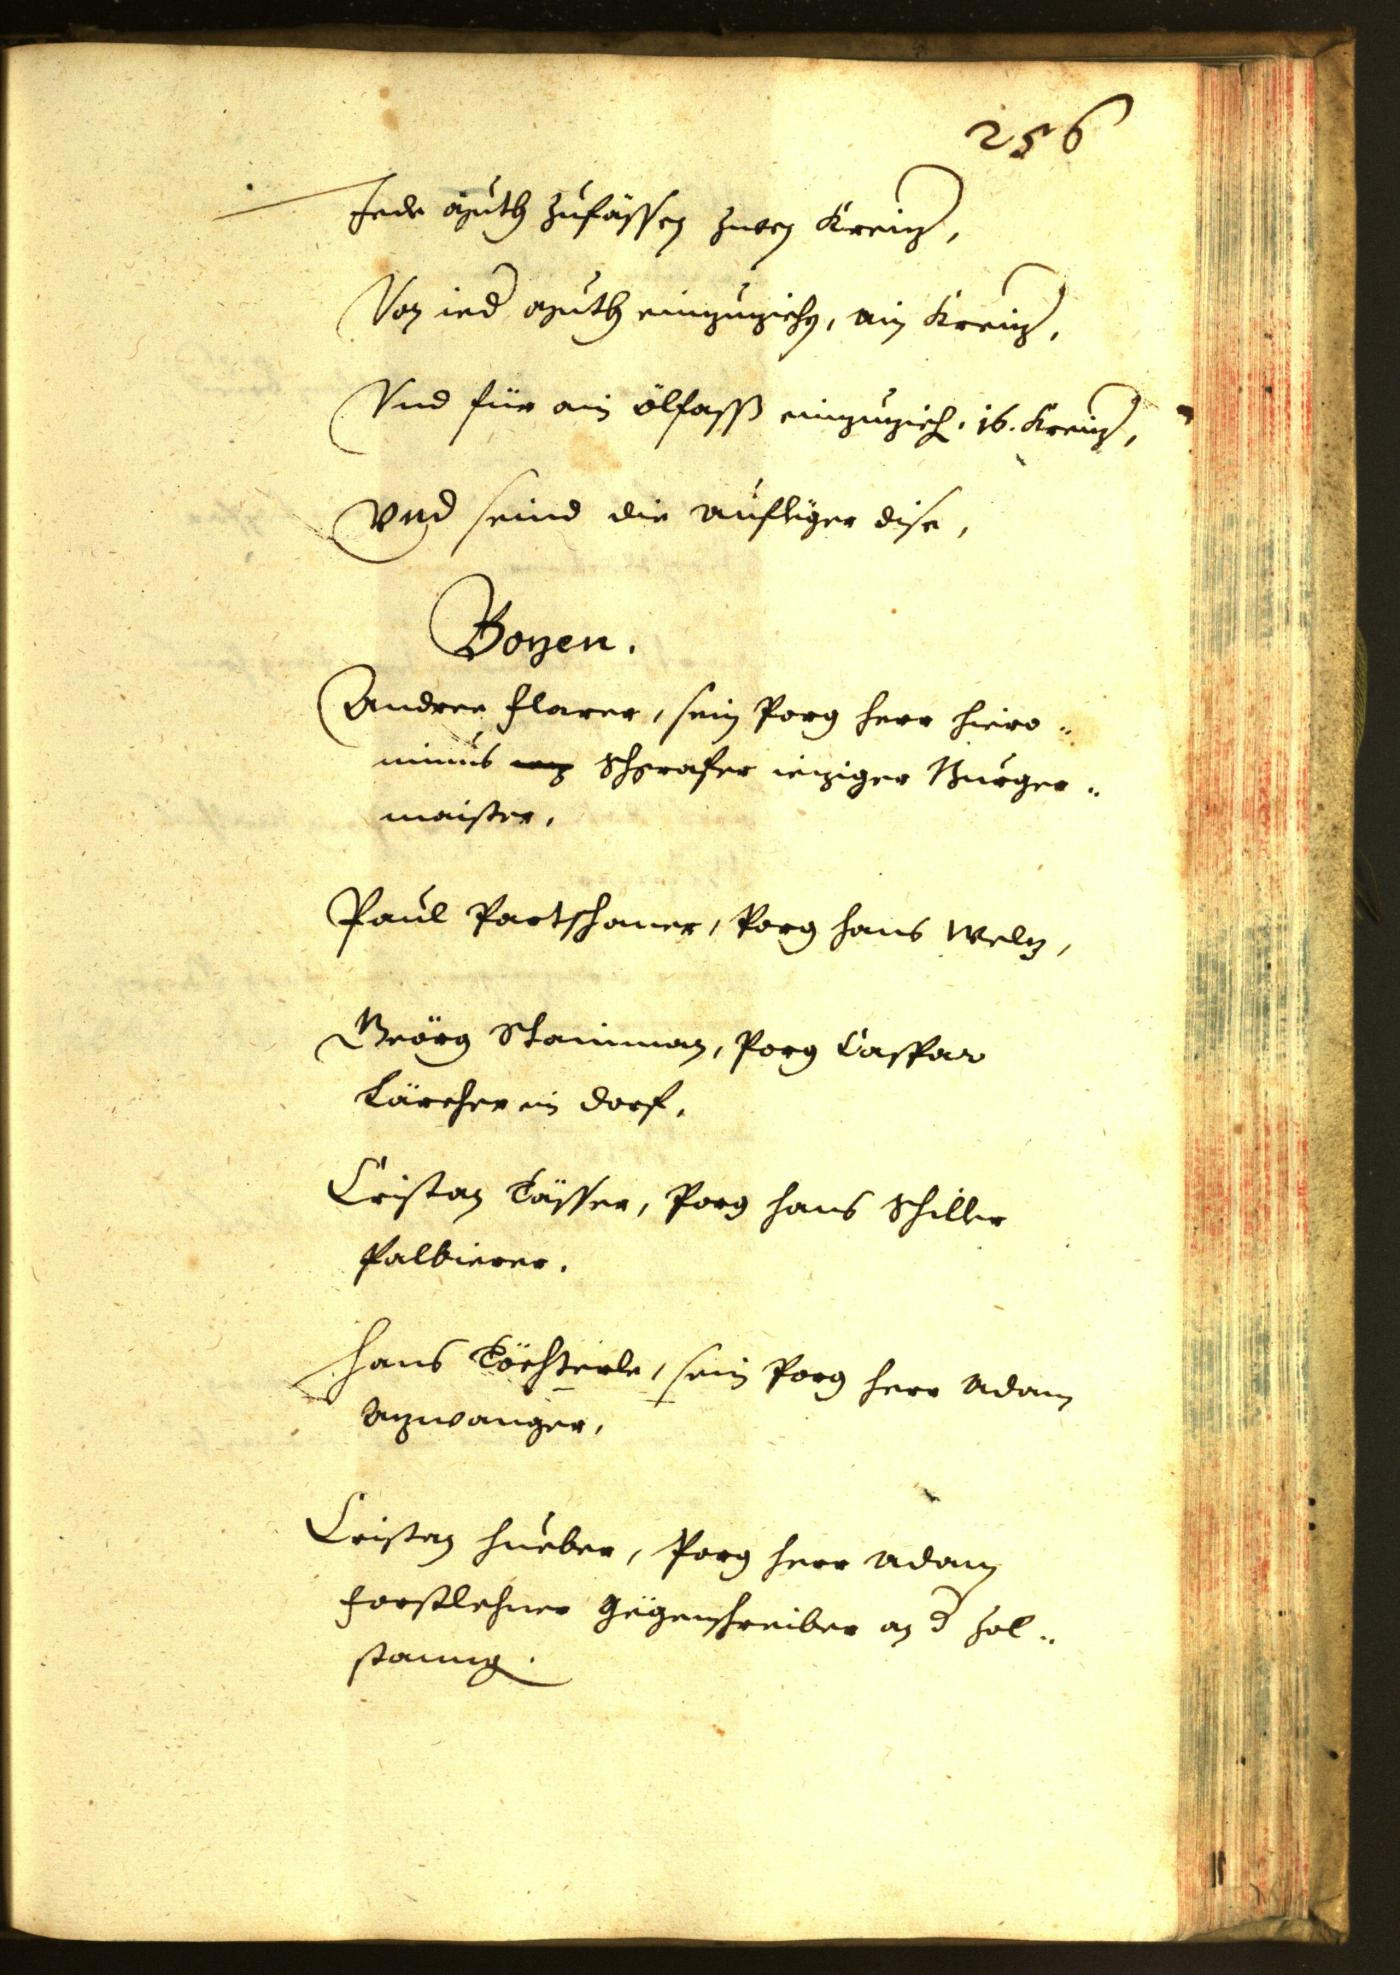 256
Jede Mutth zufässen zween Kreiz,
Von ied Mutth einzuziehen, ain Kreiz,
Vnd für ain ölfass einzuzieh, 16. Kreiz,
Vnd seind die aufleger dise,
Bozen.
Andree Flarer, sein Porg herr Hiero„
nimus Schgrafer iezziger Burger„
maister.
Paul Partschoner, Porg Hans Welz,
Geörg Stainman, Porg Caspar
Kärcher im Dorf.
Cristan Kässer, Porg Hans Schiller
Palbierer.
Hans Töchterle, sein Porg herr Adam
Azwanger,
Cristan Hueber, Porg herr Adam
Forstlehner Gegenschreiber an d zol„
stanng.